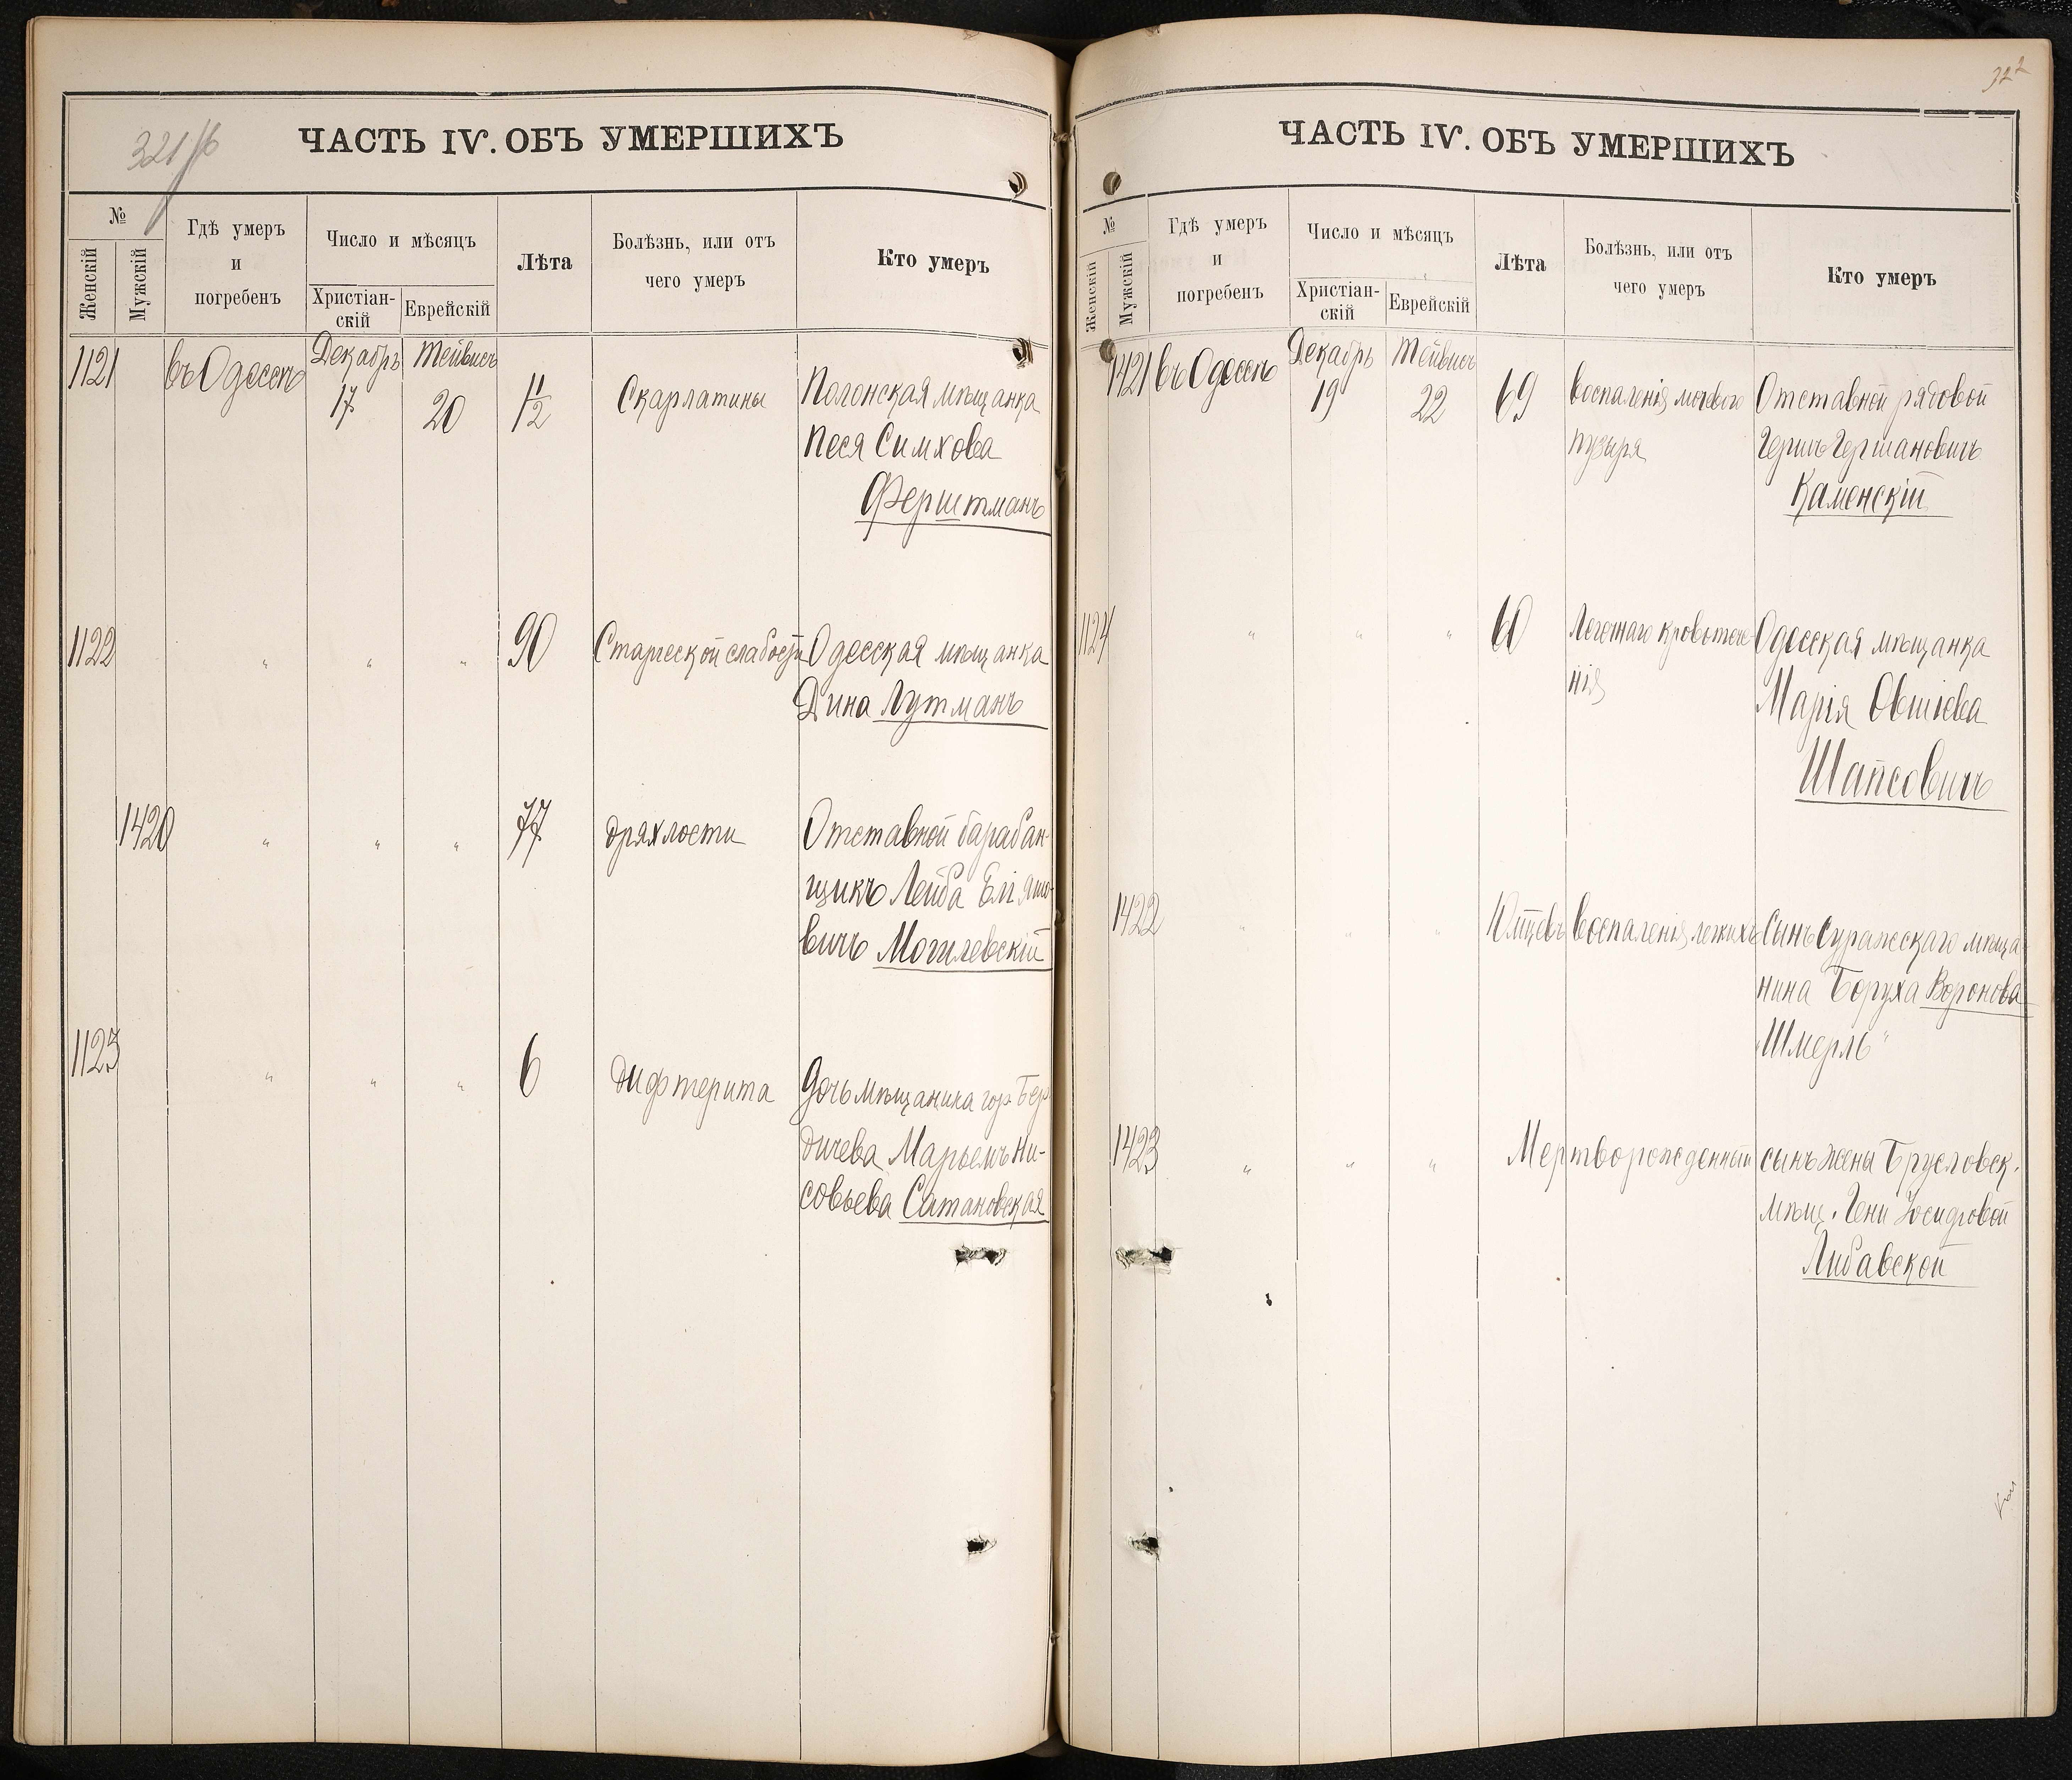 321/б
ЧАСТЬ IV. ОБЪ УМЕРШИХЪ
№
Женскій
Мужскій
Гдѣ умеръ
и
погребенъ
Число и мѣсяцъ
Христіан-
скій
Еврейскій
Лѣта
Болѣзнь, или отъ
чего умеръ
Кто умеръ
1121 въ Одессѣ Декабрь Тейвисъ
17 20 1 1/2 Скарлатины Пологская мѣщанка
Песя Симхова
Ферштманъ
1122 " " " 90 Старческой слабости Одесская мѣщанка
Дина Лутманъ
1420 " " " 77 дряхлости Отставной барабан-
щикъ Лейба Еліямо-
вичъ Могилевскій
1123 " " " 6 дифтерита Дочь мѣщанина гор. Бер-
дичева Марьемъ Ни-
совьева Сатановская
322
ЧАСТЬ IV. ОБЪ УМЕРШИХЪ
№
Женскій
Мужскій
Гдѣ умеръ
и
погребенъ
Число и мѣсяцъ
Христіан-
скій
Еврейскій
Лѣта
Болѣзнь, или отъ
чего умеръ
Кто умеръ
1421 въ Одессѣ Декабрь Тейвисъ
19 22 69 воспаленія мочевого Отставной рядовой
пузыря Гершъ Гершановичъ
Каменскій
1124 " " " 60 Легочнаго кровотече- Одесская мѣщанка
нія Марія Овшіева
Шапсовичъ
1422 " " " 10 мѣсяцевъ воспаленія легкихъ Сынъ Суражскаго мѣща-
нина Боруха Воронова
Шмерль"
1423 " " " Мертворожденный сынъ жены Брусловск.
мѣщ. Гени Іосифовой
Либавской